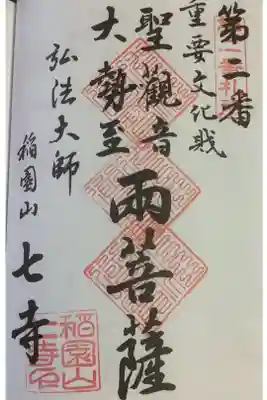 第二番
重要文化賎
聖觀音
大勢至
兩菩薩
弘法大師
稲園山
七寺
稲園山
七寺